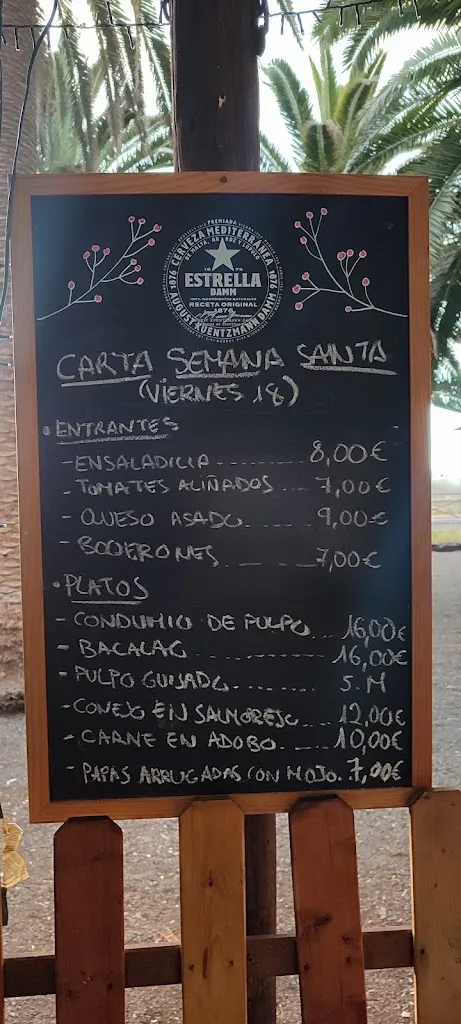 PREMIADA
CERVEZA MEDITERRÁNEA
DE MALTA, ARROZ Y LÚPULO
1876
1876
18 76
ESTRELLA
DAMM
100% INGREDIENTES NATURALES
RECETA ORIGINAL
1876
AUGUST KUENTZMANN DAMM
CARTA SEMANA SANTA
(VIERNES 18)
• ENTRANTES
- ENSALADILLA 8,00€
- TOMATES ALIÑADOS 7,00€
- QUESO ASADO 9,00€
- BOQUERONES 7,00€
• PLATOS
- CONDUMIO DE PULPO 16,00€
- BACALAO 16,00€
- PULPO GUISADO S.M
- CONEJO EN SALMOREJO 12,00€
- CARNE EN ADOBO 10,00€
- PAPAS ARRUGADAS CON MOJO. 7,00€